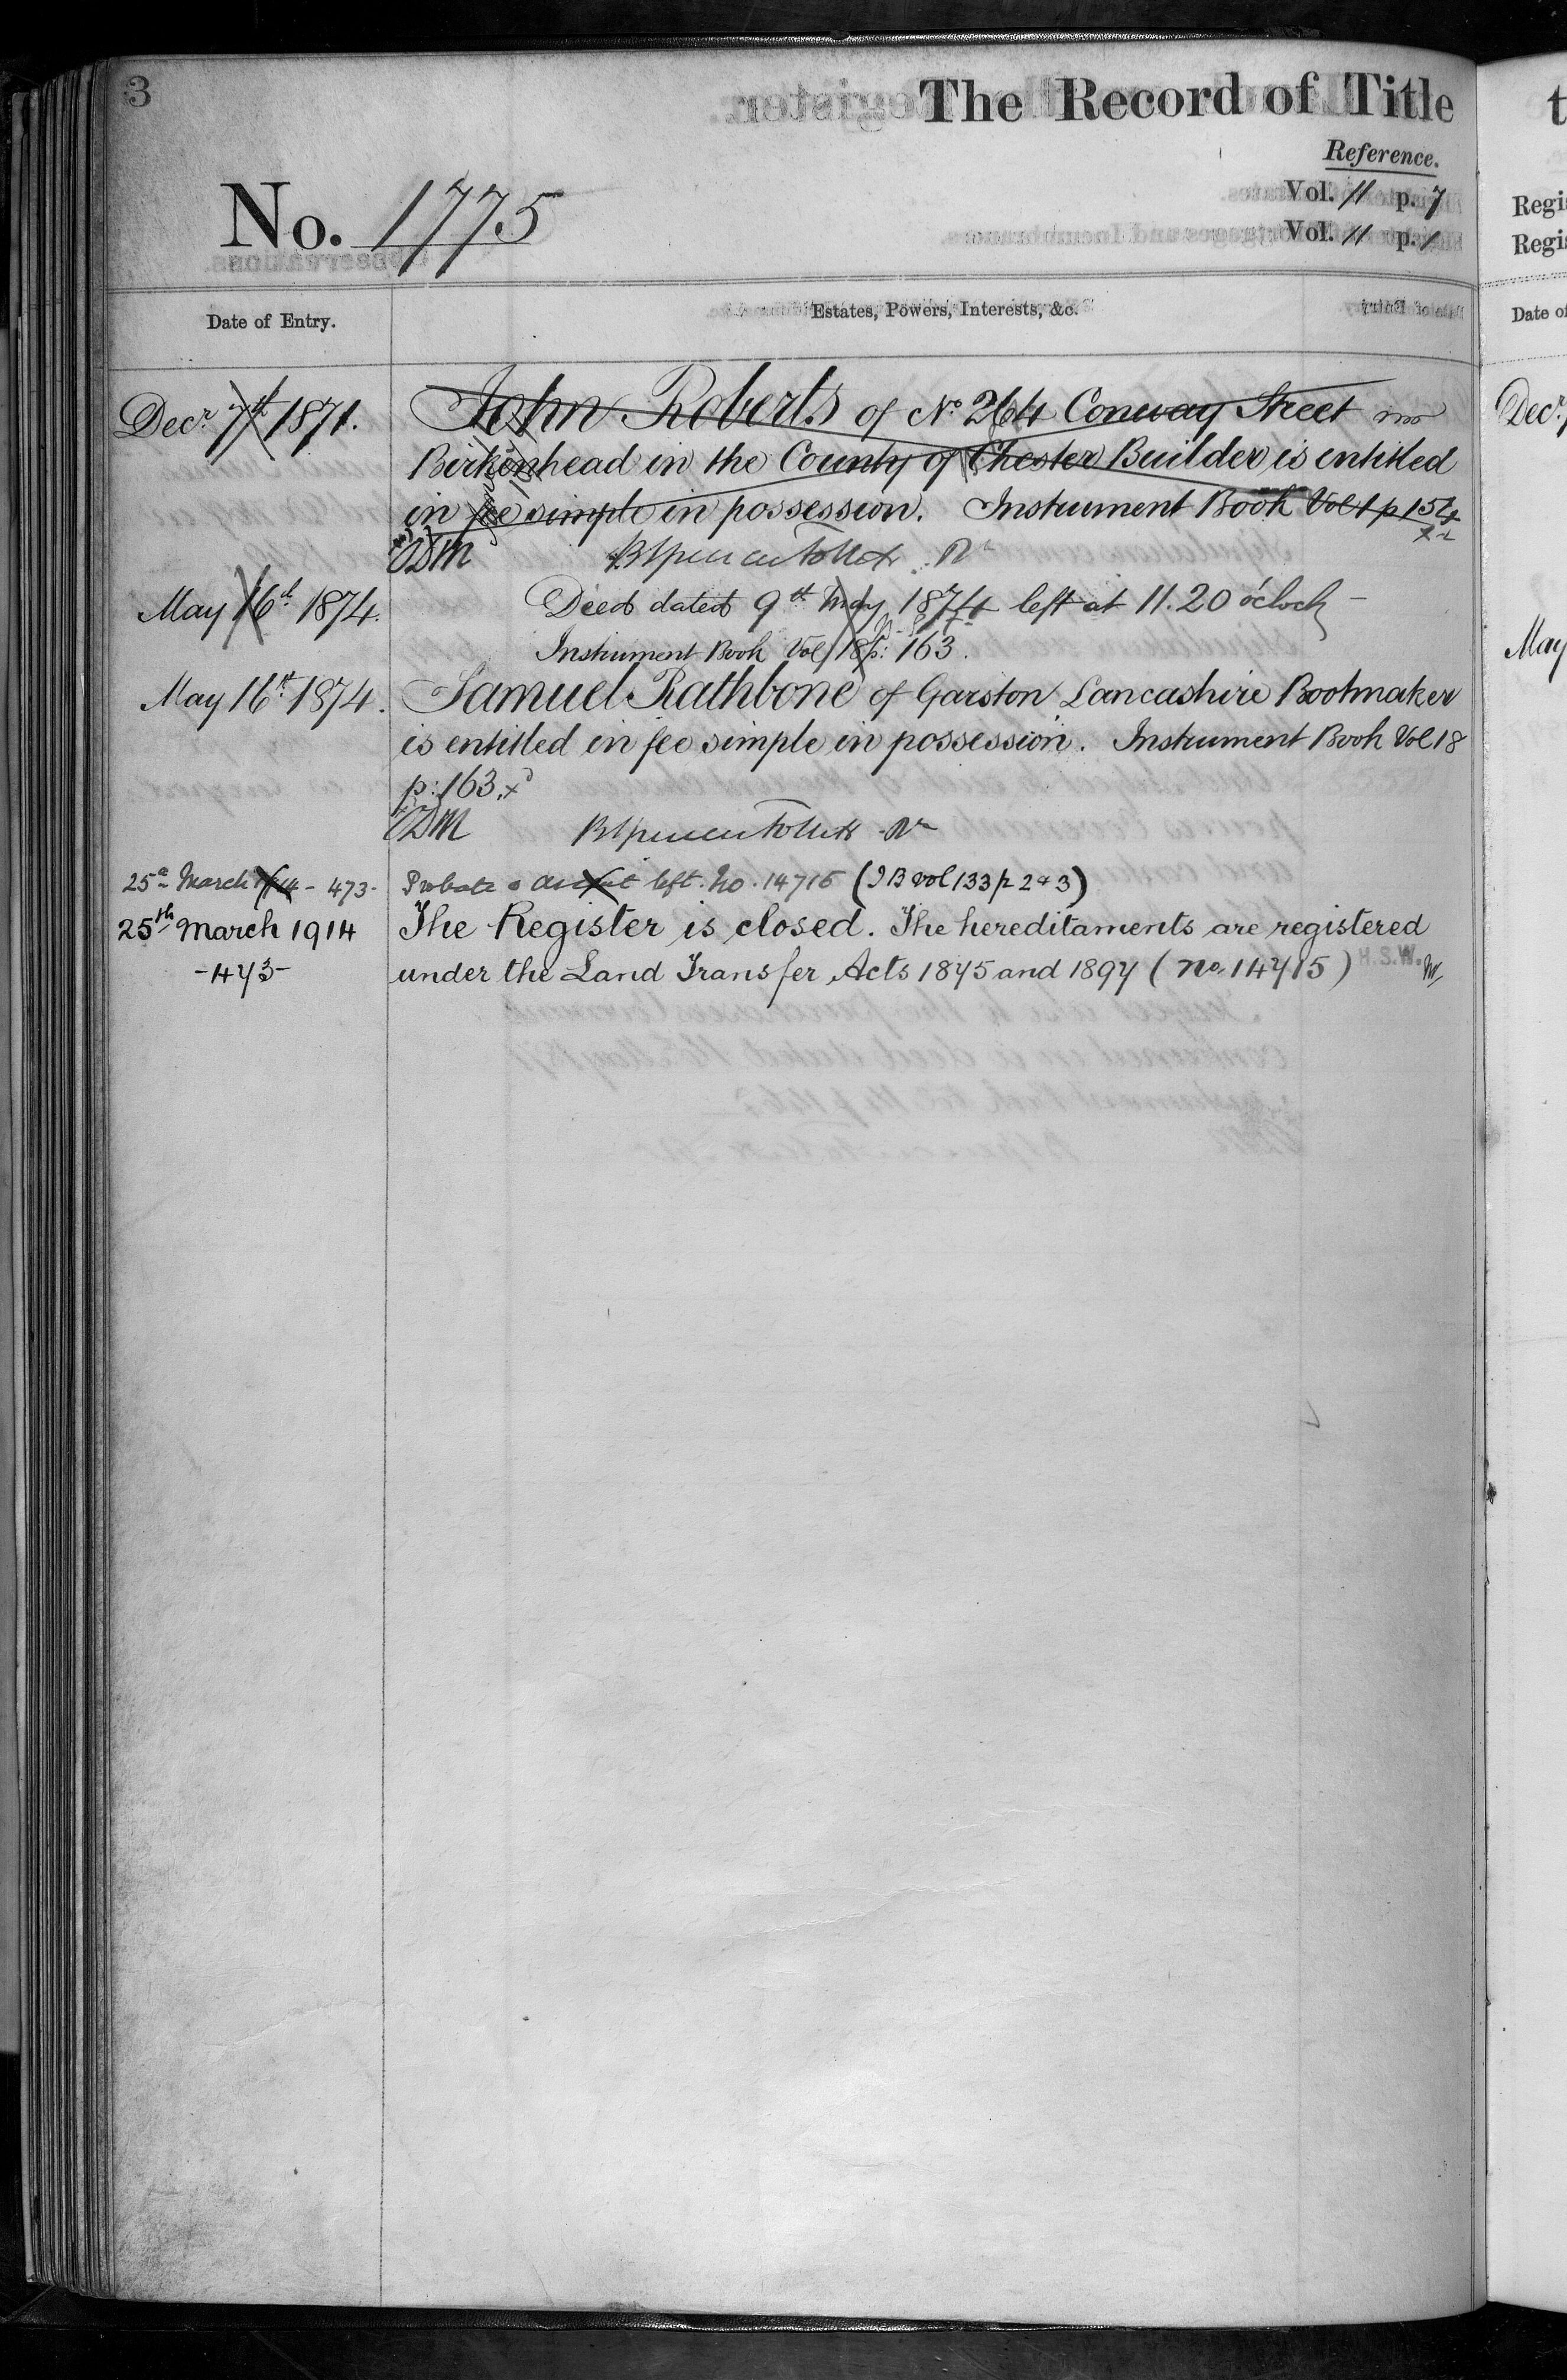 3
The Record of Title
Reference.
Vol. 11 p. 7
Vol. 11 p. 1
No. 1775
Date of Entry.
Estates, Powers, Interests, &c.
Decr. 7th 1871.
John Roberts of No. 264 Conway Street
Birkenhead in the County of Chester Builder is entitled
in fee simple in possession. Instrument Book Vol 1 p 154
May 16th 1874.
Deed dated 9th May 1874 left at 11.20 o'clock
Instrument Book Vol 18 p: 163.
May 16th 1874.
Samuel Rathbone of Garston, Lancashire Bootmaker
is entitled in fee simple in possession. Instrument Book Vol 18
p: 163.
25th March 1914 - 473-
Probate left. No. 14715 (IB vol 133 p 2 & 3)
25th March 1914
-473-
The Register is closed. The hereditaments are registered
under the Land Transfer Acts 1875 and 1897 (No. 14715) H.S.W.
t
Regis
Regis
Date of
Decr.
May